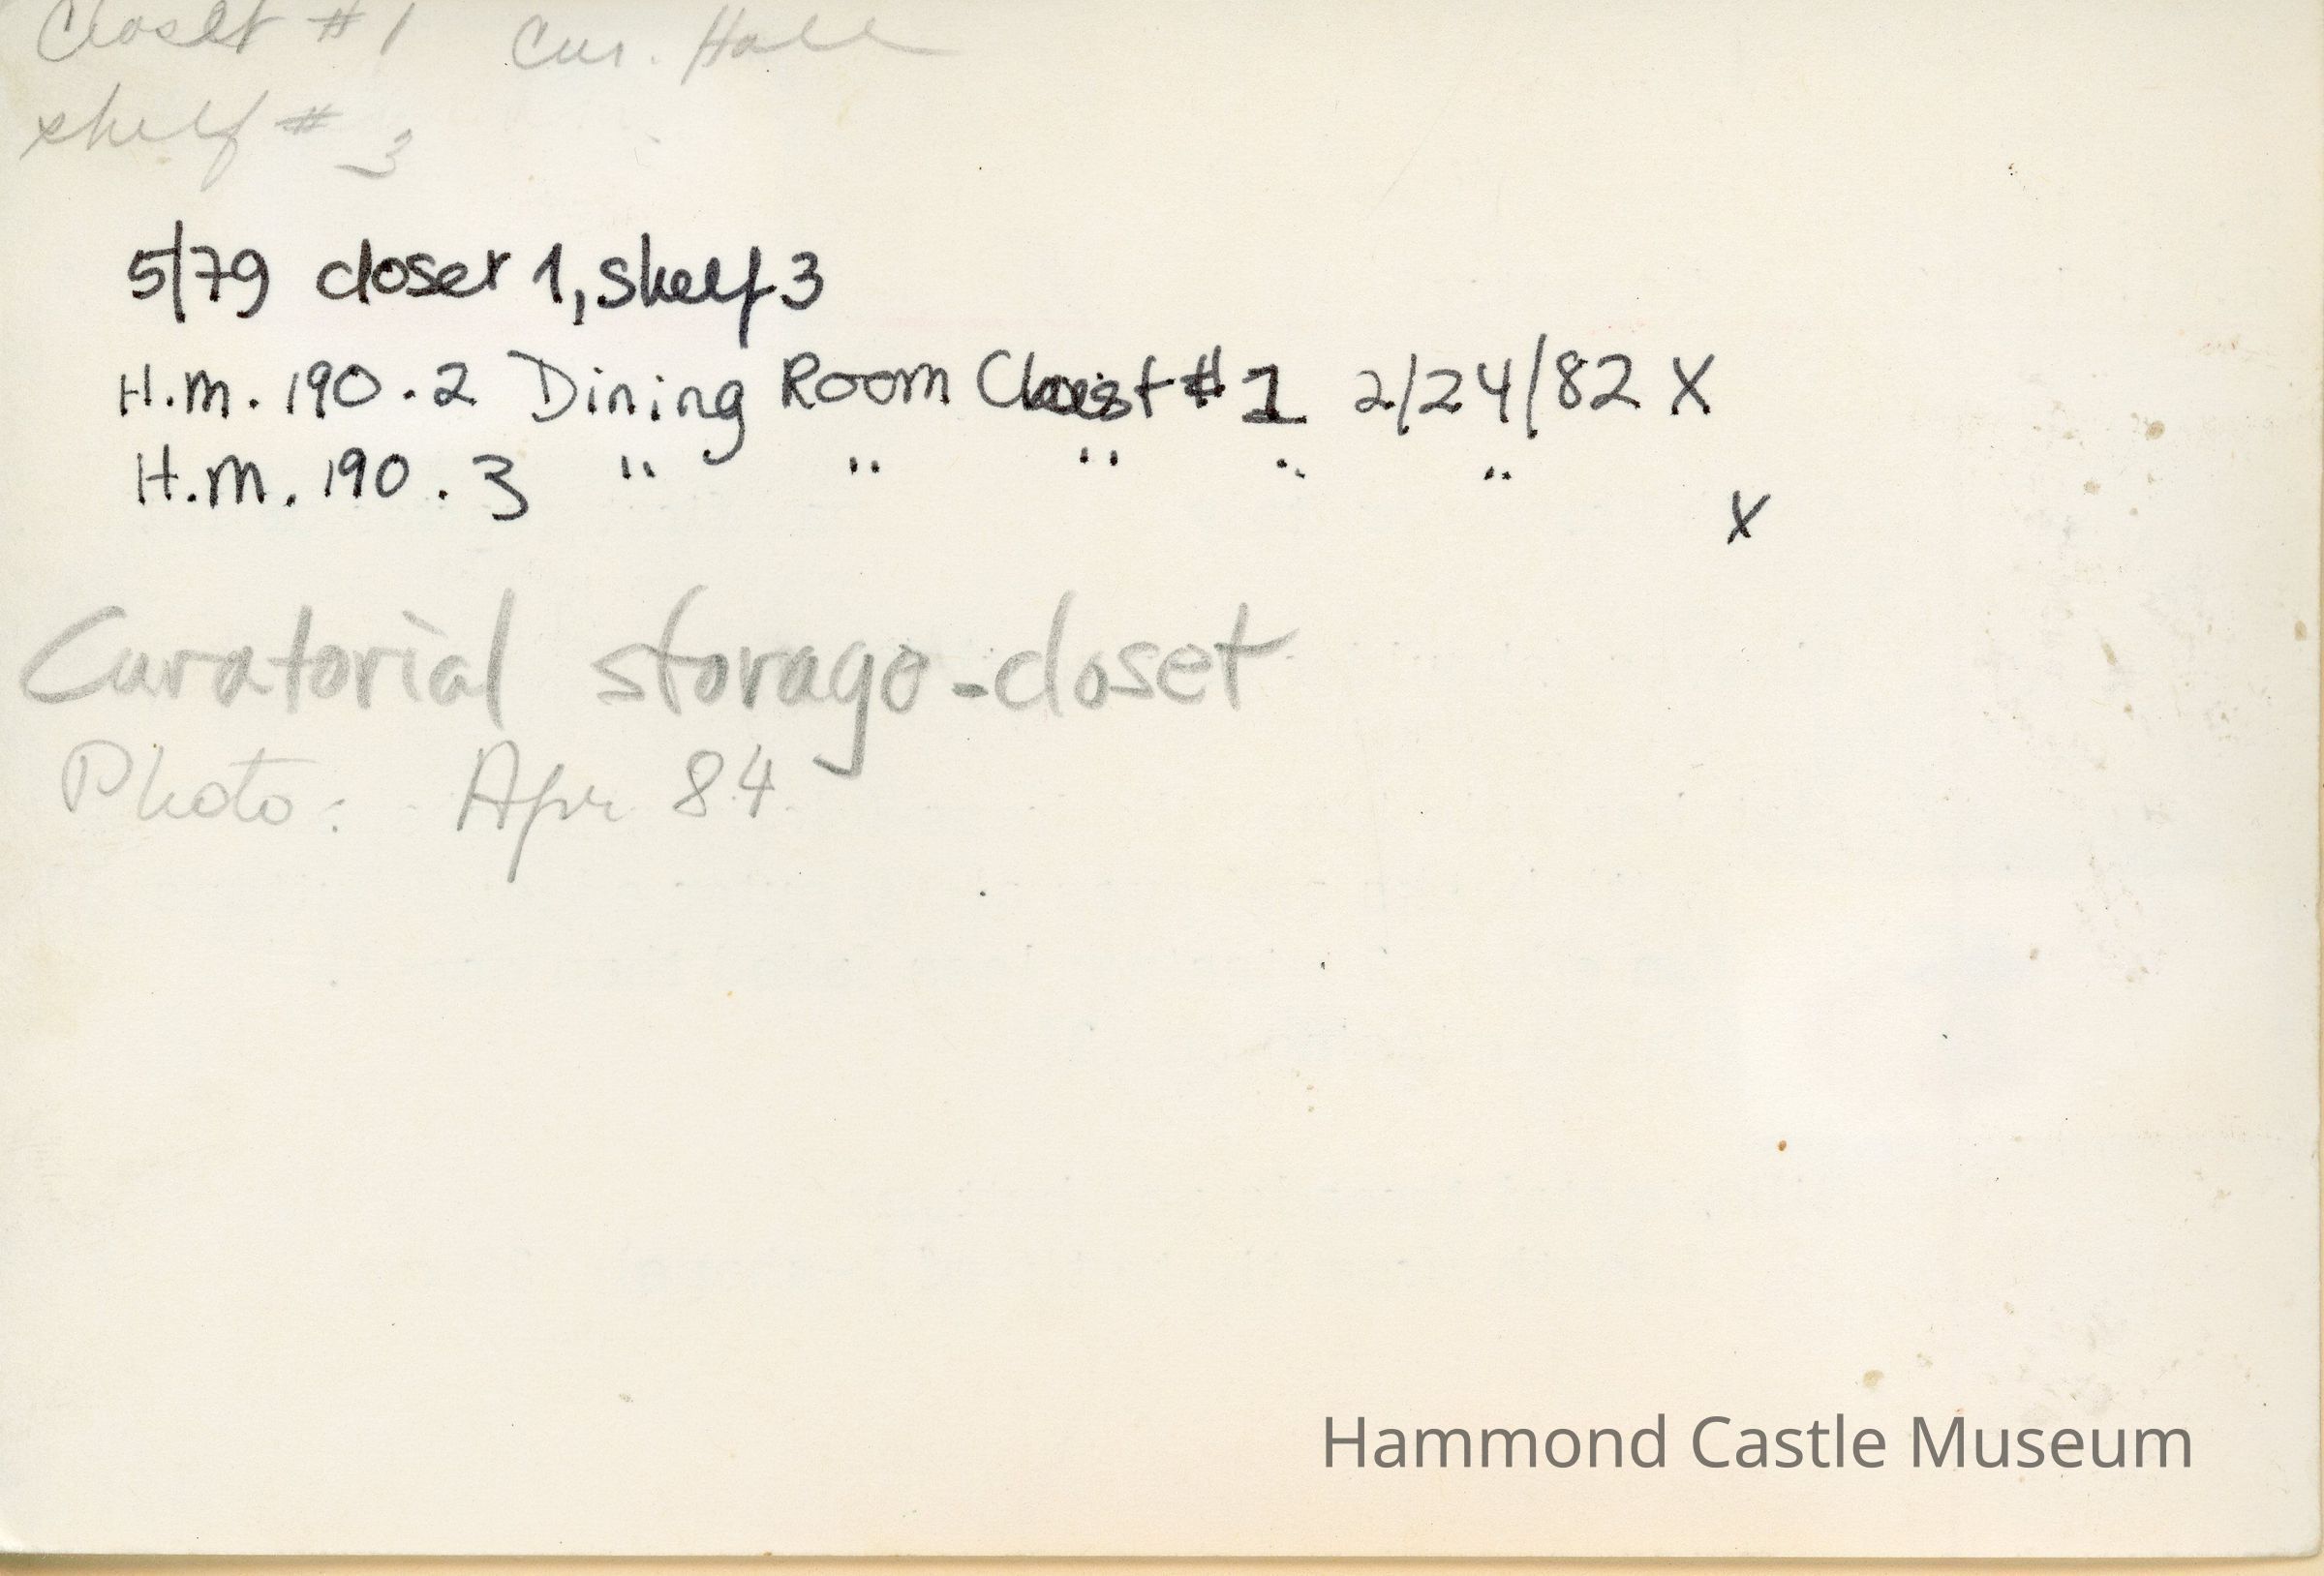 Closet #1 Cur. Hall
shelf # 3
5/79 closet 1, shelf 3
H.M. 190.2 Dining Room Closet #1 2/24/82 X
H.M. 190.3 " " " " "
X
Curatorial storage-closet
Photo: Apr 84
Hammond Castle Museum